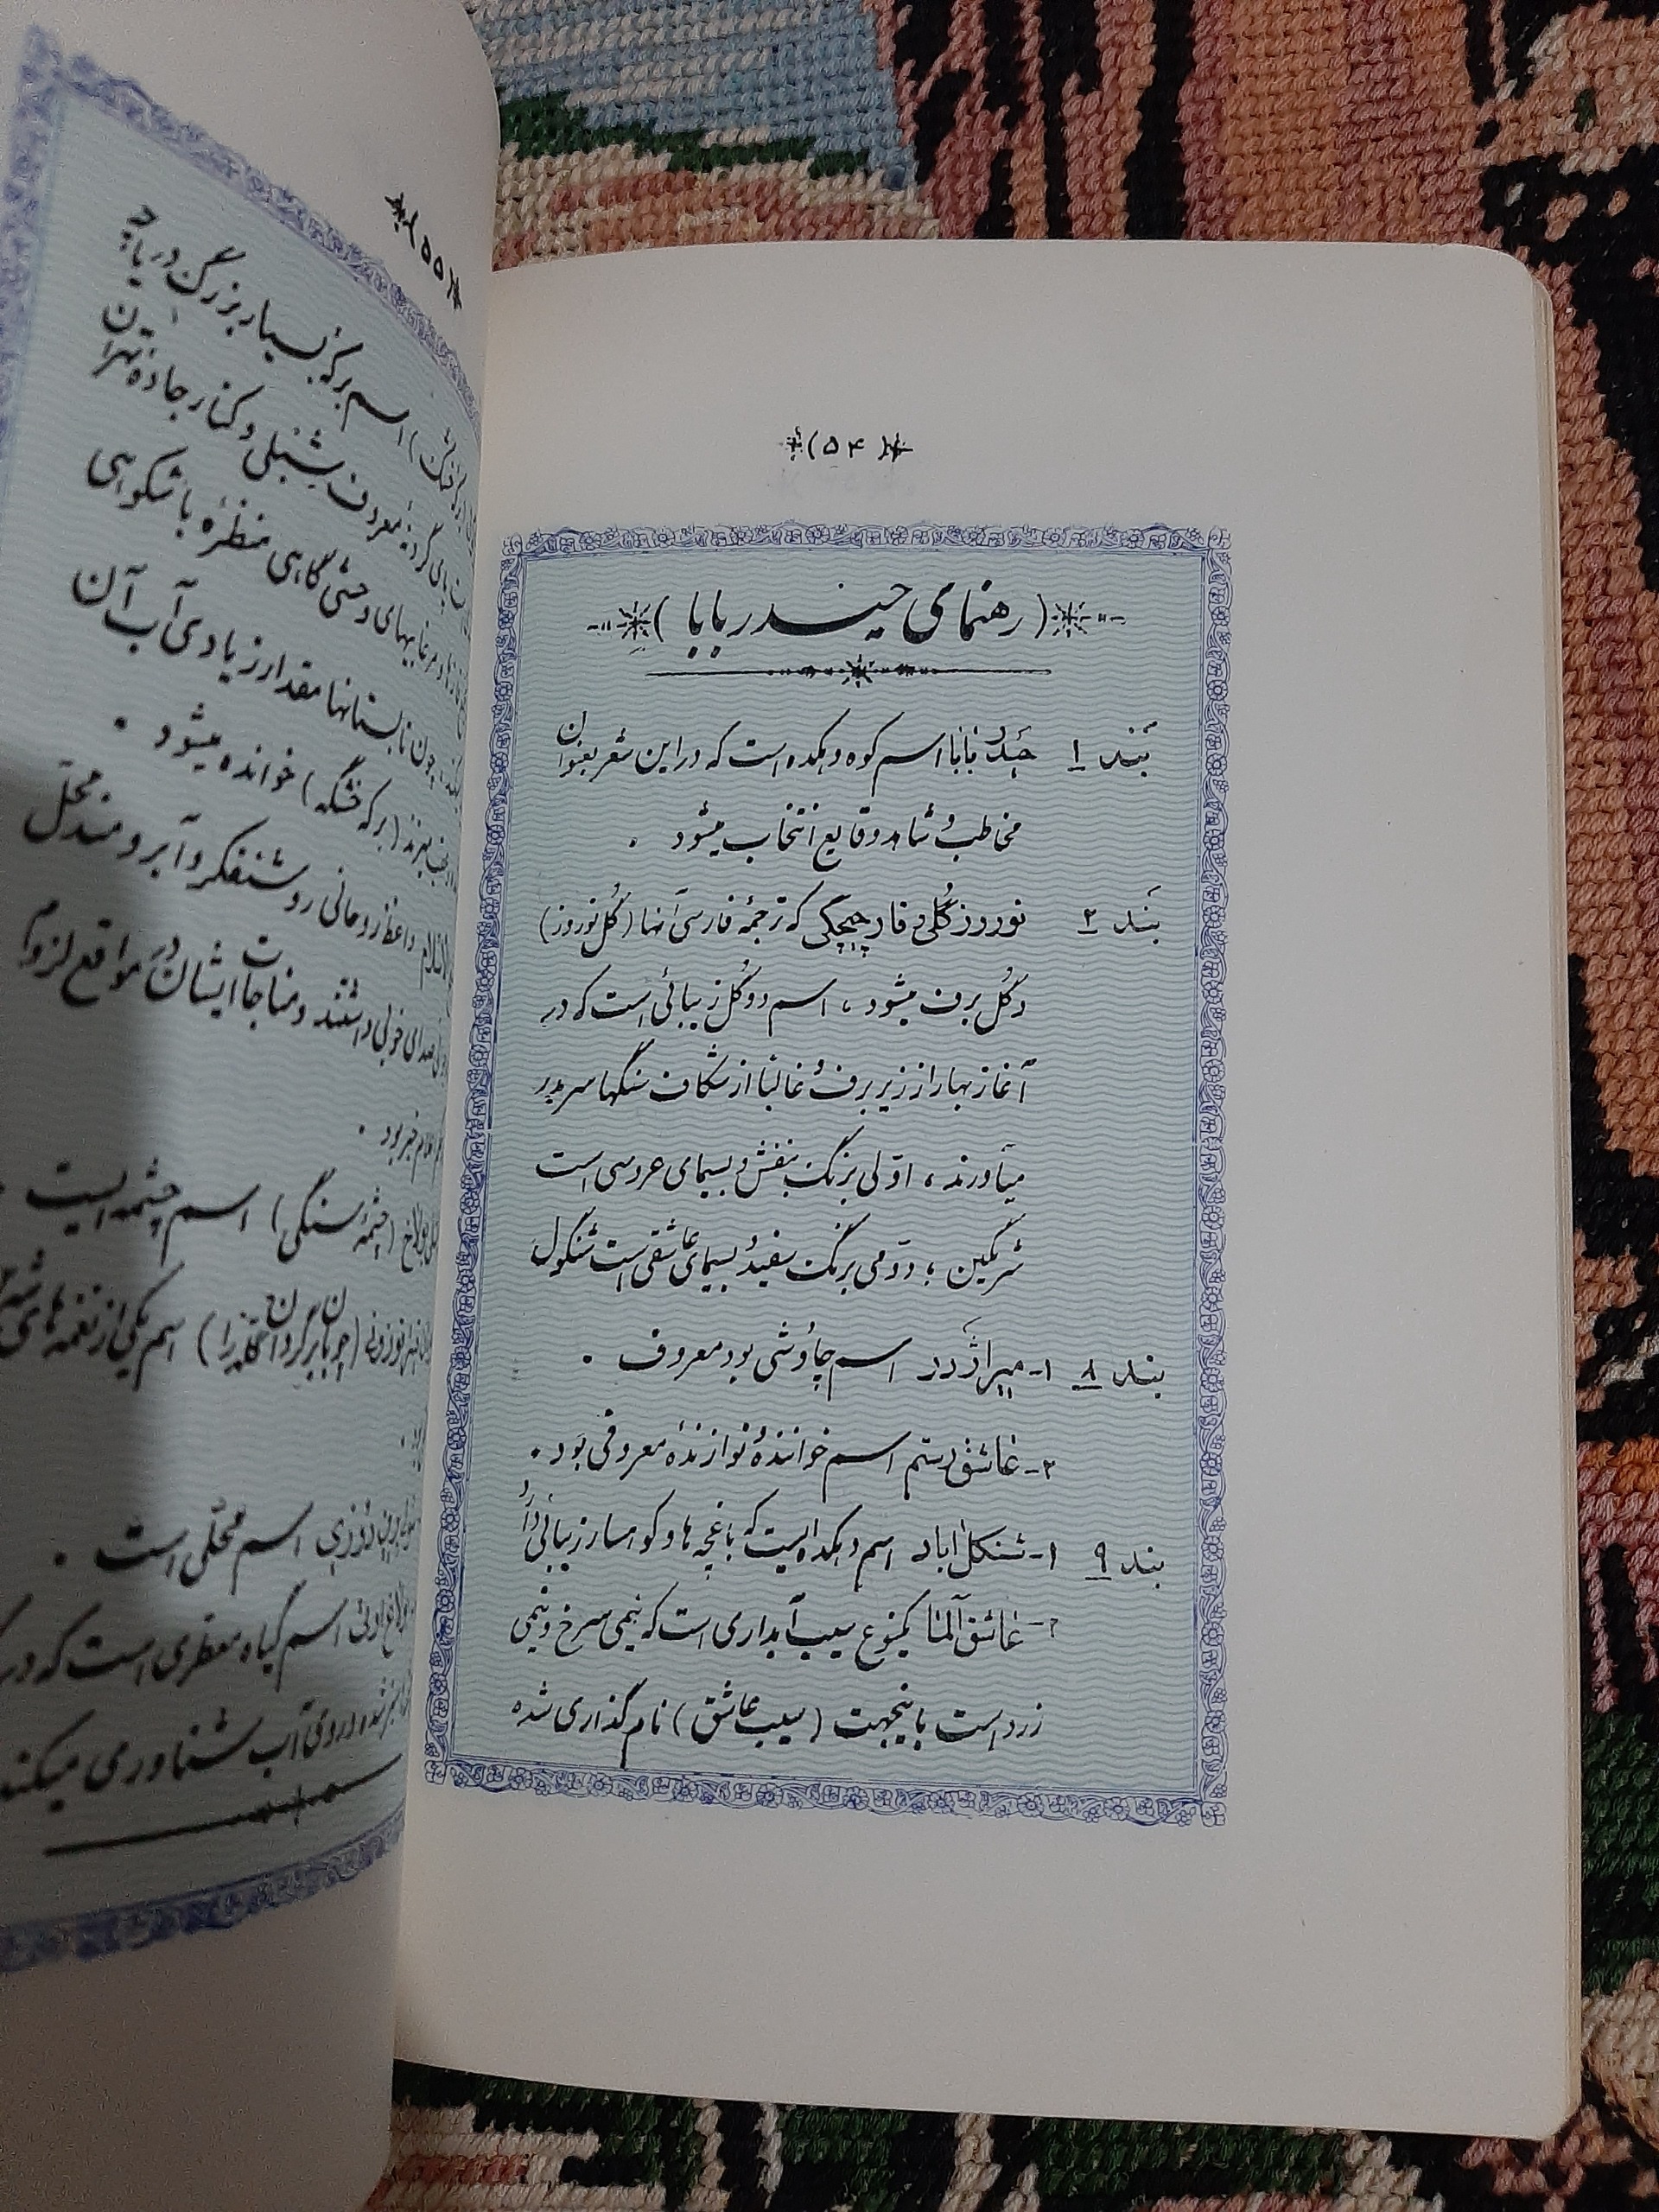 *(۵۴)*
(رهنمای حیدربابا)
بند ۱ حیدربابا اسم کوه و دهکده است که در این شعر بعنوان
مخاطب و شاهد وقایع انتخاب میشود .
بند ۲ نوروز گلی و قارچیچگی که ترجمهٔ فارسی آنها (گل نوروز)
و گل برف میشود ، اسم دو گل زیبائی است که در
آغاز بهار از زیر برف و غالبا از شکاف سنگها سر بدر
میآورند ، اوّلی برنگ بنفش و بسیمای عروسی است
شرمگین ؛ دوّمی برنگ سفید و بسیمای عاشقی است شنگول
بند ۸ ۱- میراژدر اسم چاوشی بود معروف .
۲- عاشق رستم اسم خواننده و نوازندهٔ معروفی بود .
بند ۹ ۱- شنگل آباد اسم دهکده ایست که باغچه ها و کوهسار زیبائی دارد
۲- عاشق آلما یکنوع سیب آبداری است که نیمی سرخ و نیمی
زرد است باینجهت (سیب عاشق) نام گذاری شده
*(۵۵)*
اسم برکهٔ بسیار بزرگ دریاچه
معروف بشبلی و کنار جاده تهران
وحشی گاهی منظرهٔ باشکوهی
چون تابستانها مقدار زیادی آب آن
(برکه خشگه) خوانده میشود .
واعظ روحانی روشنفکر و آبرومند محلّ
صدای خوبی داشتند و مناجات ایشان در مواقع لزوم
خبر بود .
(چشمهٔ سنگی) اسم چشمه ایست
(چوبان برگردان گله را) اسم یکی از نغمه های
اسم محلّی است .
اسم گیاه معطری است که در
روی آب شناوری میکند